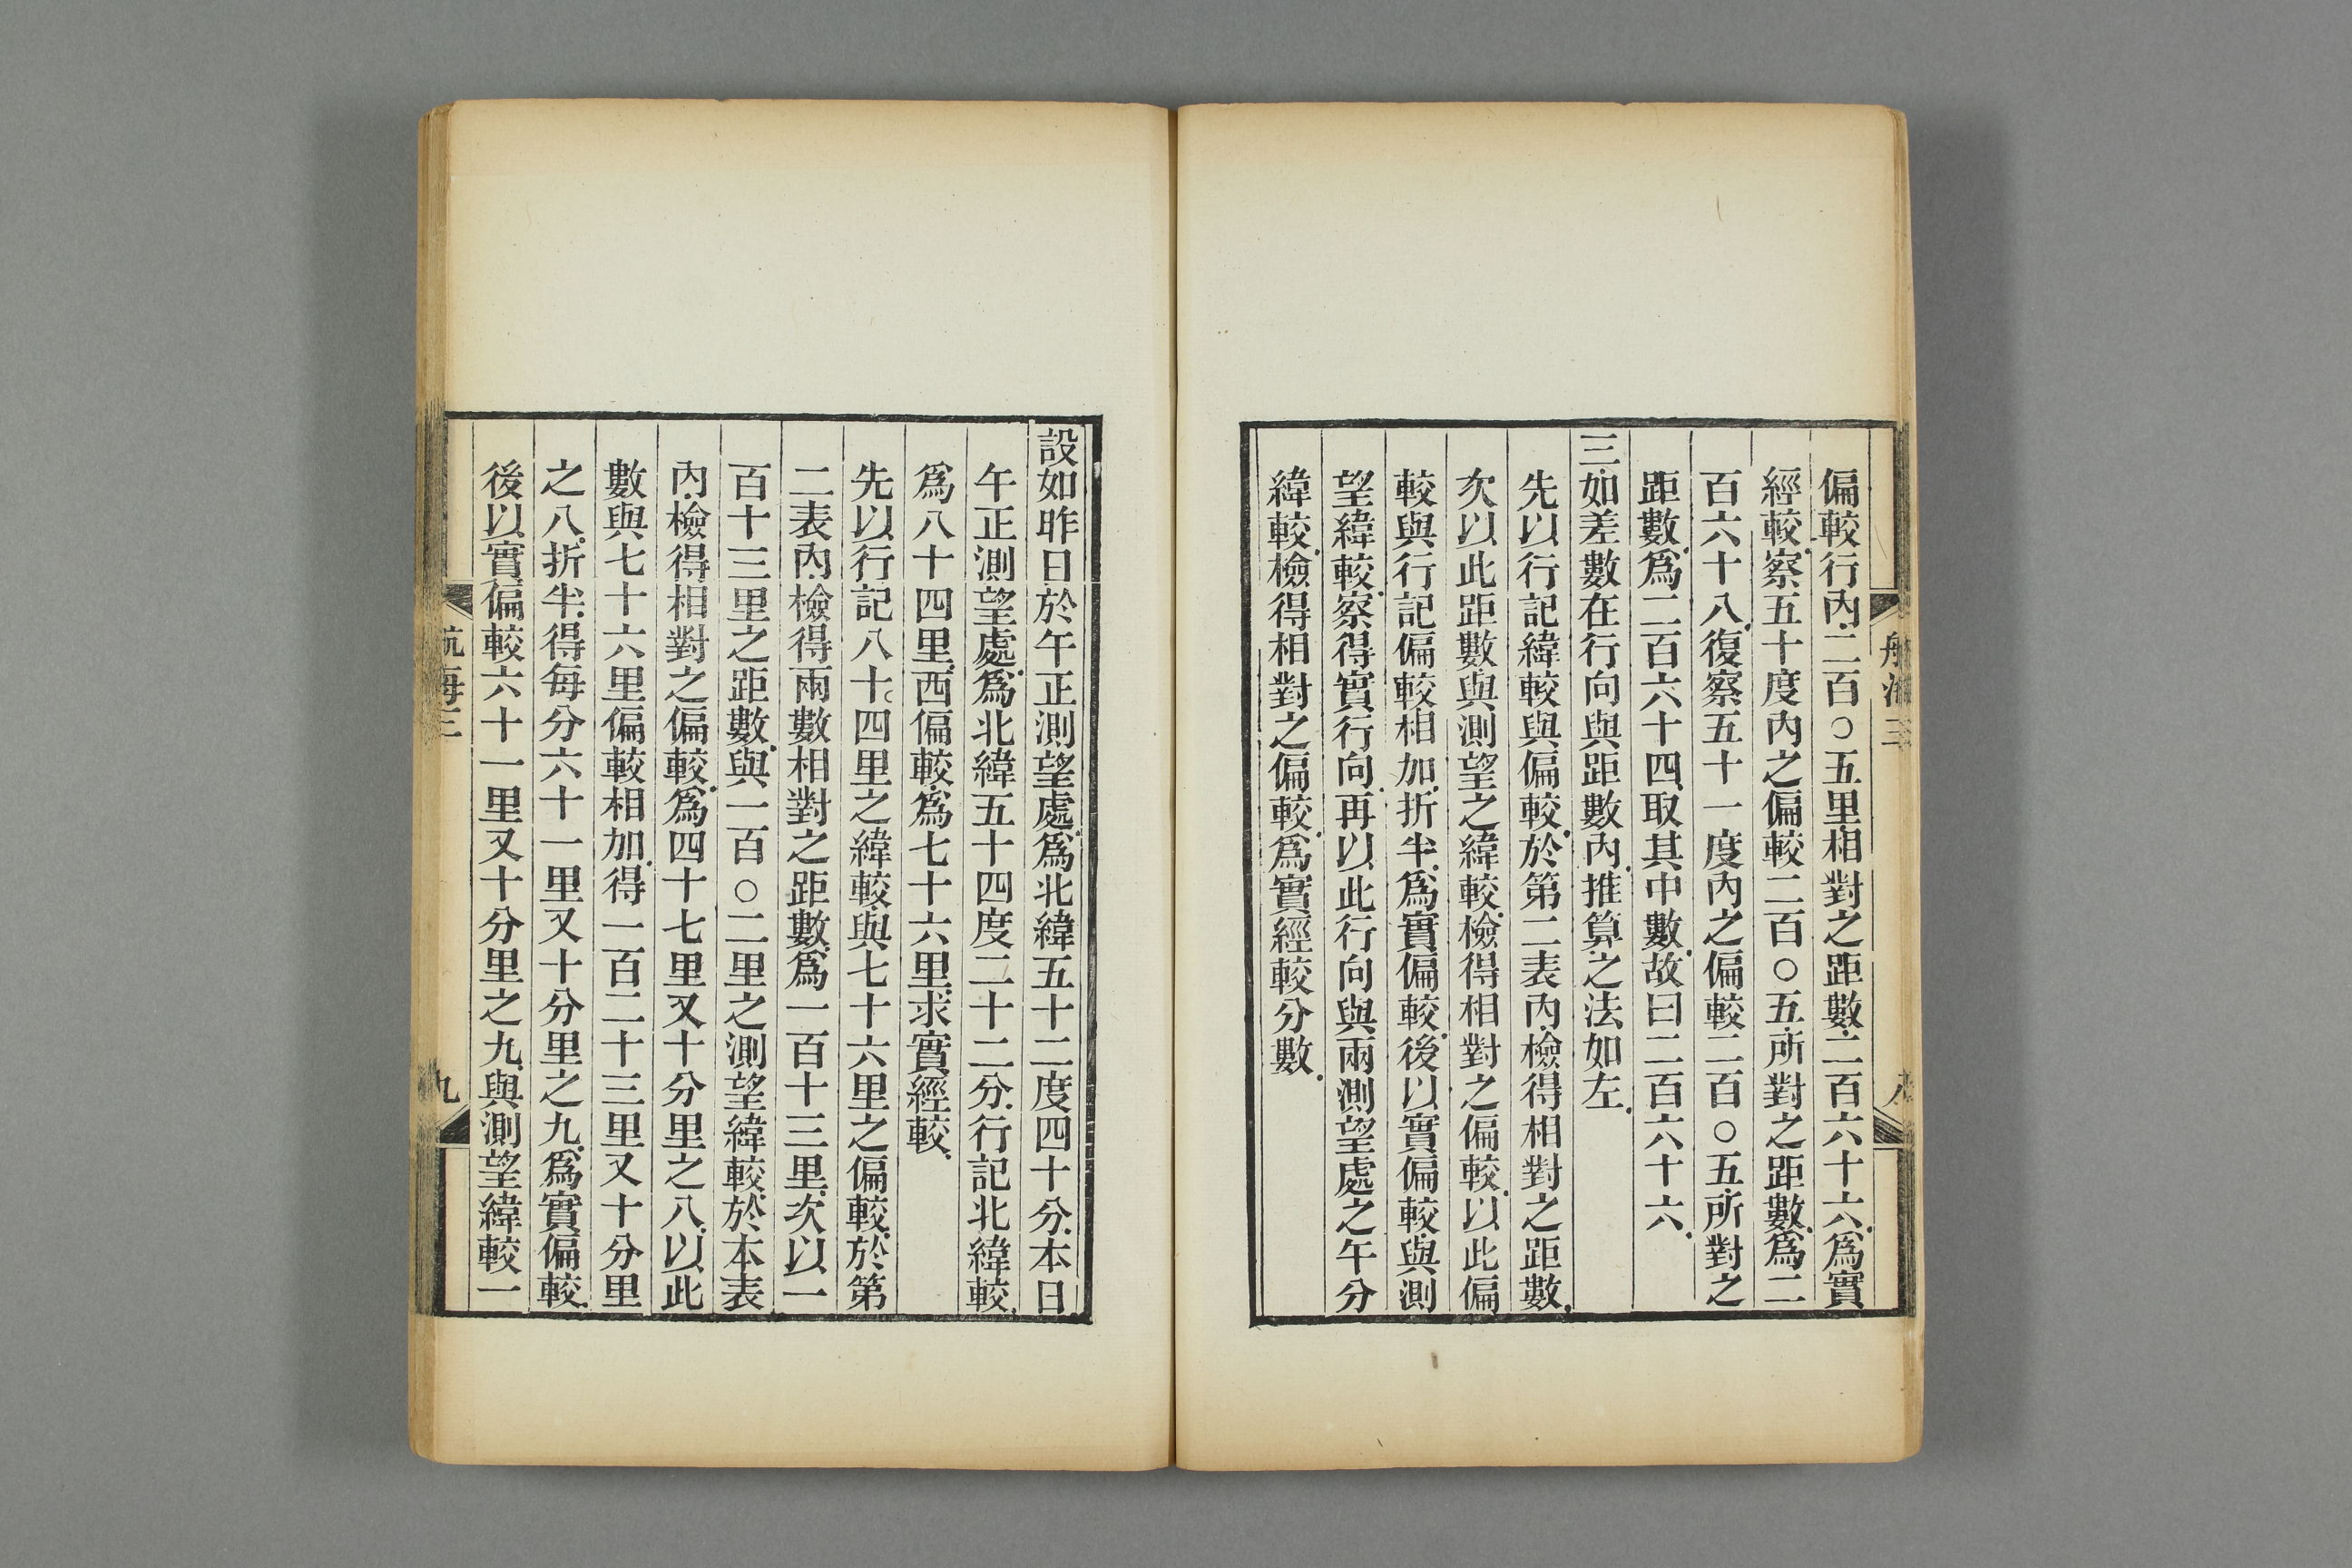 偏較行內二百○五里相對之距數二百六十六爲實
經較察五十度內之偏較二百○五所對之距數爲二
百六十八復察五十一度內之偏較二百○五所對之
距數爲二百六十四取其中數故曰二百六十六
三如差數在行向與距數內推算之法如左
先以行記緯較與偏較於第二表內檢得相對之距數
次以此距數與測望之緯較檢得相對之偏較以此偏
較與行記偏較相加折半爲實偏較後以實偏較與測
望緯較察得實行向再以此行向與兩測望處之午分
緯較檢得相對之偏較爲實經較分數
設如昨日於午正測望處爲北緯五十二度四十分本日
午正測望處爲北緯五十四度二十二分行記北緯較
爲八十四里西偏較爲七十六里求實經較
先以行記八十四里之緯較與七十六里之偏較於第
二表內檢得兩數相對之距數爲一百十三里次以一
百十三里之距數與一百○二里之測望緯較於本表
內檢得相對之偏較爲四十七里又十分里之八以此
數與七十六里偏較相加得一百二十三里又十分里
之八折半得每分六十一里又十分里之九爲實偏較
後以實偏較六十一里又十分里之九與測望緯較一
航海三
九